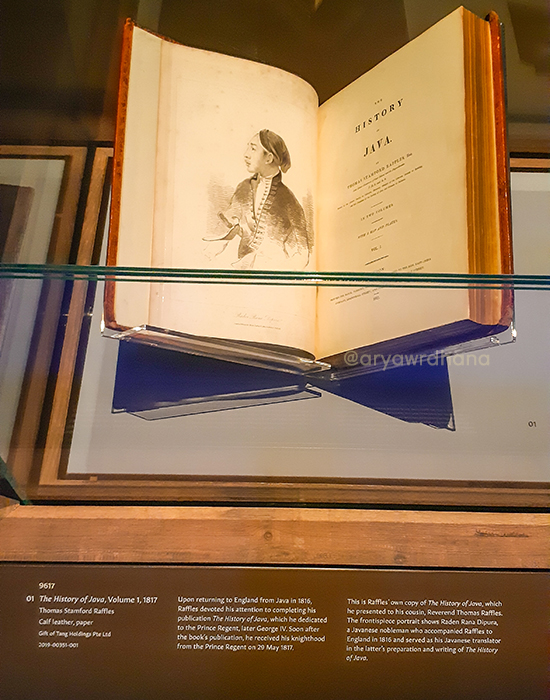 THE
HISTORY
OF
JAVA.
BY
THOMAS STAMFORD RAFFLES, Esq.
IN TWO VOLUMES.
WITH A MAP AND PLATES.
VOL. I.
@aryawrdhana
01
9617
01 The History of Java, Volume 1, 1817
Thomas Stamford Raffles
Calf leather, paper
Gift of Tang Holdings Pte Ltd
2019-00351-001
Upon returning to England from Java in 1816,
Raffles devoted his attention to completing his
publication The History of Java, which he dedicated
to the Prince Regent, later George IV. Soon after
the book's publication, he received his knighthood
from the Prince Regent on 29 May 1817.
This is Raffles' own copy of The History of Java, which
he presented to his cousin, Reverend Thomas Raffles.
The frontispiece portrait shows Raden Rana Dipura,
a Javanese nobleman who accompanied Raffles to
England in 1816 and served as his Javanese translator
in the latter's preparation and writing of The History
of Java.